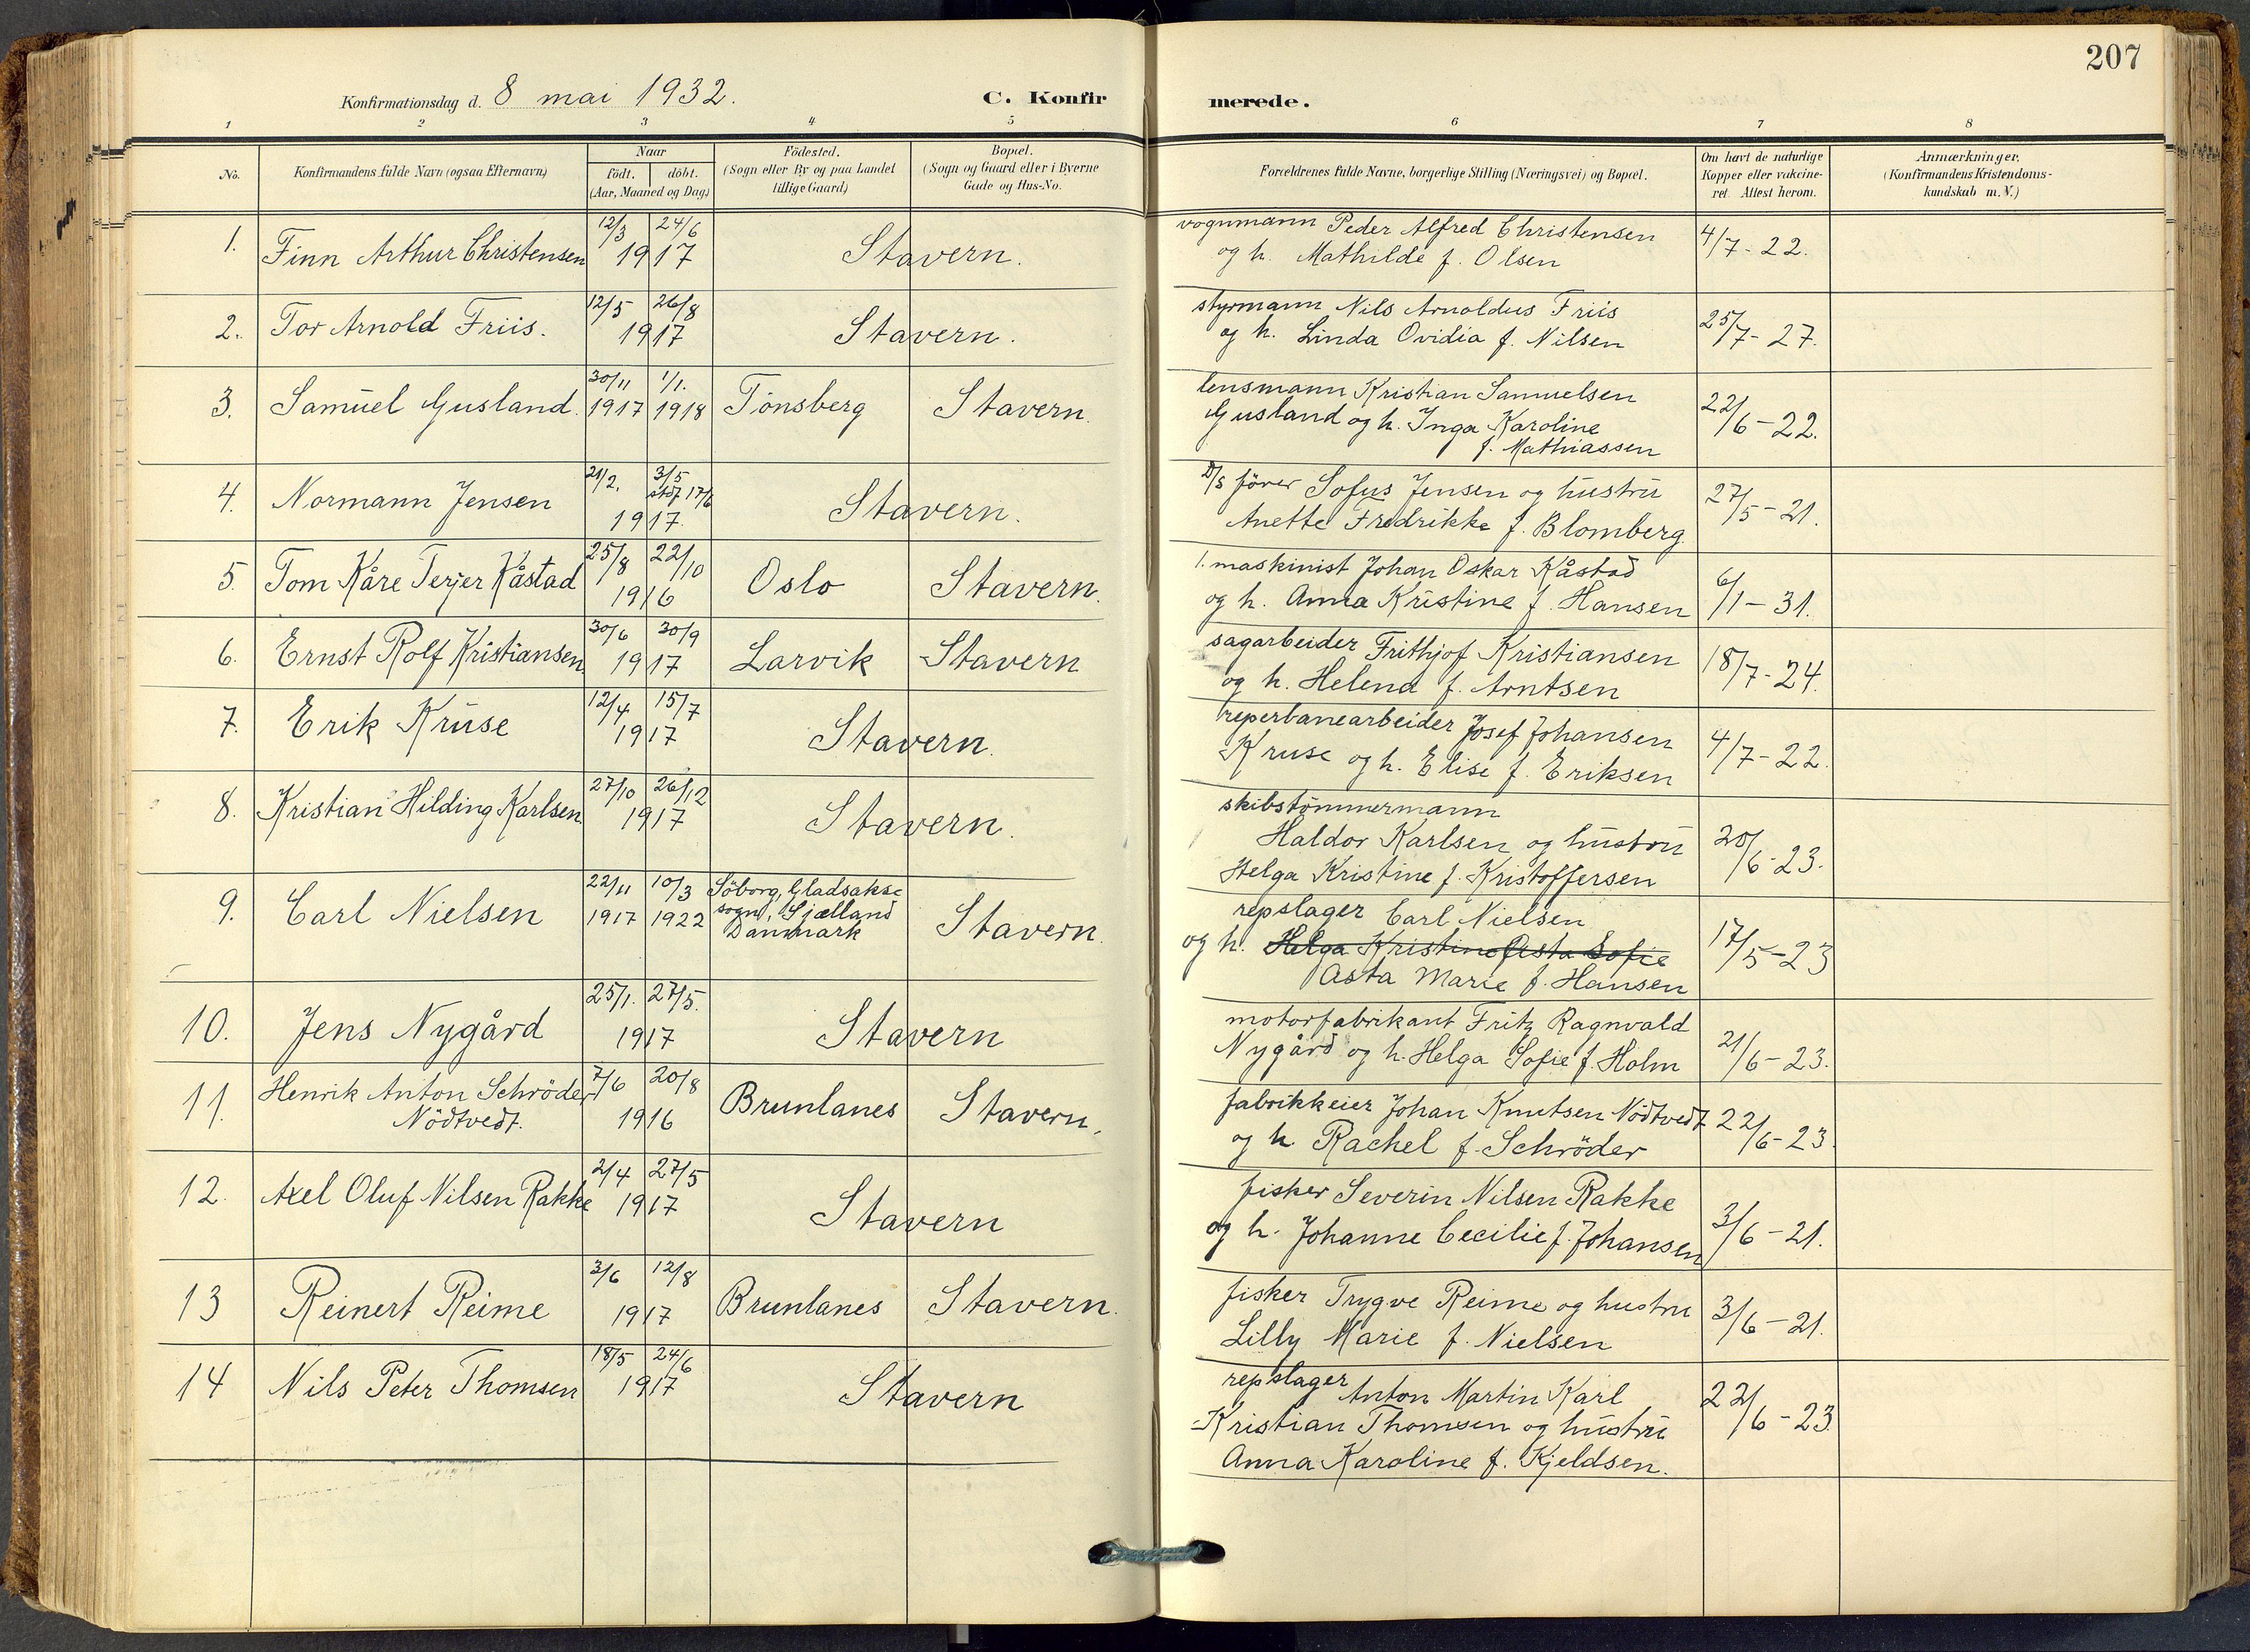 207
Konfirmationsdag d. 8 mai 1932. C. Konfirmerede.
1 2 3 4 5 6 7 8
No. Konfirmandens fulde Navn (ogsaa Efternavn) Naar födt. döbt. (Aar, Maaned og Dag) Födested. (Sogn eller By og paa Landet tillige Gaard) Bopæl. (Sogn og Gaard eller i Byerne Gade og Hus-No. Forældrenes fulde Navne, borgerlige Stilling (Næringsvei) og Bopæl. Om havt de naturlige Kopper eller vakcineret. Attest herom. Anmærkninger. (Konfirmandens Kristendomskundskab m. V.)
1. Finn Arthur Christensen 12/3 24/6 1917 Stavern. vognmann Peder Alfred Christensen
og h. Mathilde f. Olsen 4/7-22.
2. Tor Arnold Friis. 12/5 26/8 1917 Stavern. styrmann Nils Arnoldus Friis
og h. Linda Ovidia f. Nilsen 25/7-27.
3. Samuel Gusland. 30/11 1917 1/1. 1918 Tönsberg Stavern. lensmann Kristian Samuelsen
Gusland og h. Inga Karoline
f. Mathiassen 22/6-22.
4. Normann Jensen 21/2. 3/5 stdf 17/6 1917. Stavern. D/s förer Sofus Jensen og hustru
Anette Fredrikke f. Blomberg. 27/5-21.
5. Tom Kåre Terjer Kåstad 25/8 22/10 1916 Oslo Stavern. 1. maskinist Johan Oskar Kåstad
og h. Anna Kristine f. Hansen 6/1-31.
6. Ernst Rolf Kristiansen. 30/6 30/9 1917 Larvik Stavern sagarbeider Frithjof Kristiansen
og h. Helena f. Arntsen 18/7-24.
7. Erik Kruse 12/4 15/7 1917 Stavern. reperbanearbeider Josef Johansen
Kruse og h. Elise f. Eriksen 4/7-22.
8. Kristian Hilding Karlsen. 27/10 26/12 1917 Stavern. skibstömmermann
Haldor Karlsen og hustru
Helga Kristine f. Kristoffersen 20/6-23.
9. Carl Nielsen 22/11 1917 10/3 1922 Söborg, Gladsakse
sogn, Sjælland
Danmark Stavern. repslager Carl Nielsen
og h. Helga Kristine Asta Sofie
Asta Marie f. Hansen 17/5-23
10. Jens Nygård 25/1. 27/5. 1917 Stavern motorfabrikant Fritz Ragnvald
Nygård og h. Helga Sofie f. Holm 21/6-23.
11. Henrik Anton Schröder
Nödtvedt. 7/6 20/8 1916 Brunlanes Stavern. fabrikkeier Johan Knutsen Nödtvedt
og h. Rachel f. Schröder 22/6-23.
12. Axel Oluf Nilsen Rakke 2/4 27/5 1917 Stavern fisker Severin Nilsen Rakke
og h. Johanne Cecilie f. Johansen 3/6-21.
13 Reinert Reime 3/6 12/8 1917 Brunlanes Stavern. fisker Trygve Reime og hustru
Lilly Marie f. Nielsen 3/6-21.
14 Nils Peter Thomsen 18/5 24/6 1917 Stavern repslager Anton Martin Karl
Kristian Thomsen og hustru
Anna Karoline f. Kjeldsen. 22/6-23.